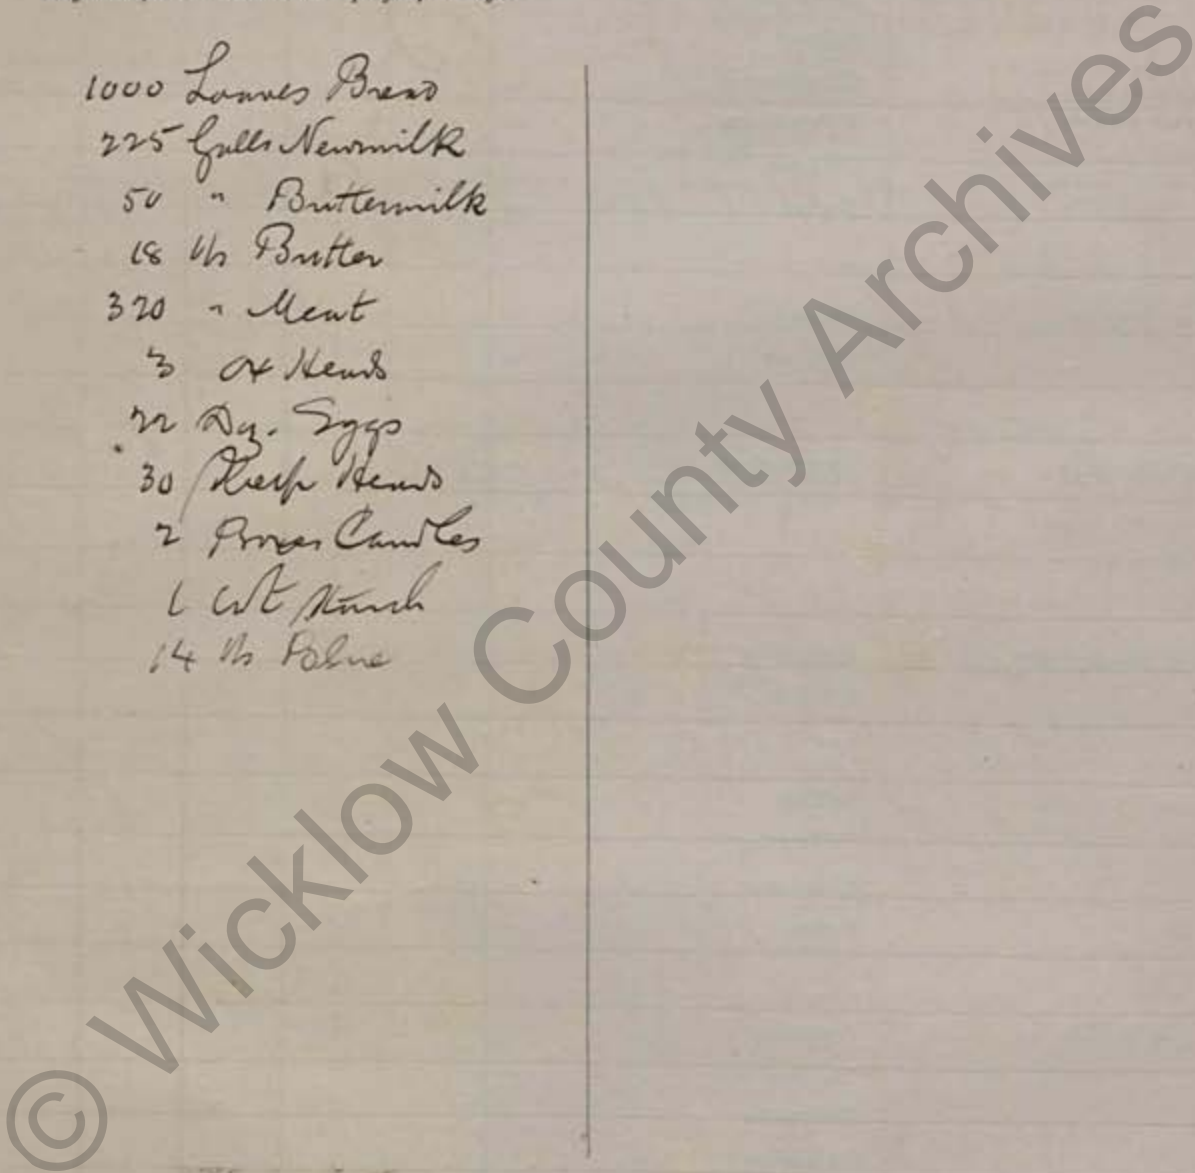 1000 Loaves Bread
225 Galls Newmilk
50 " Buttermilk
18 lbs Butter
320 " Meat
3 Ox Heads
22 Dz. Eggs
30 Sheep Heads
2 Boxes Candles
1 Cwt Starch
14 lbs
© Wicklow County Archives